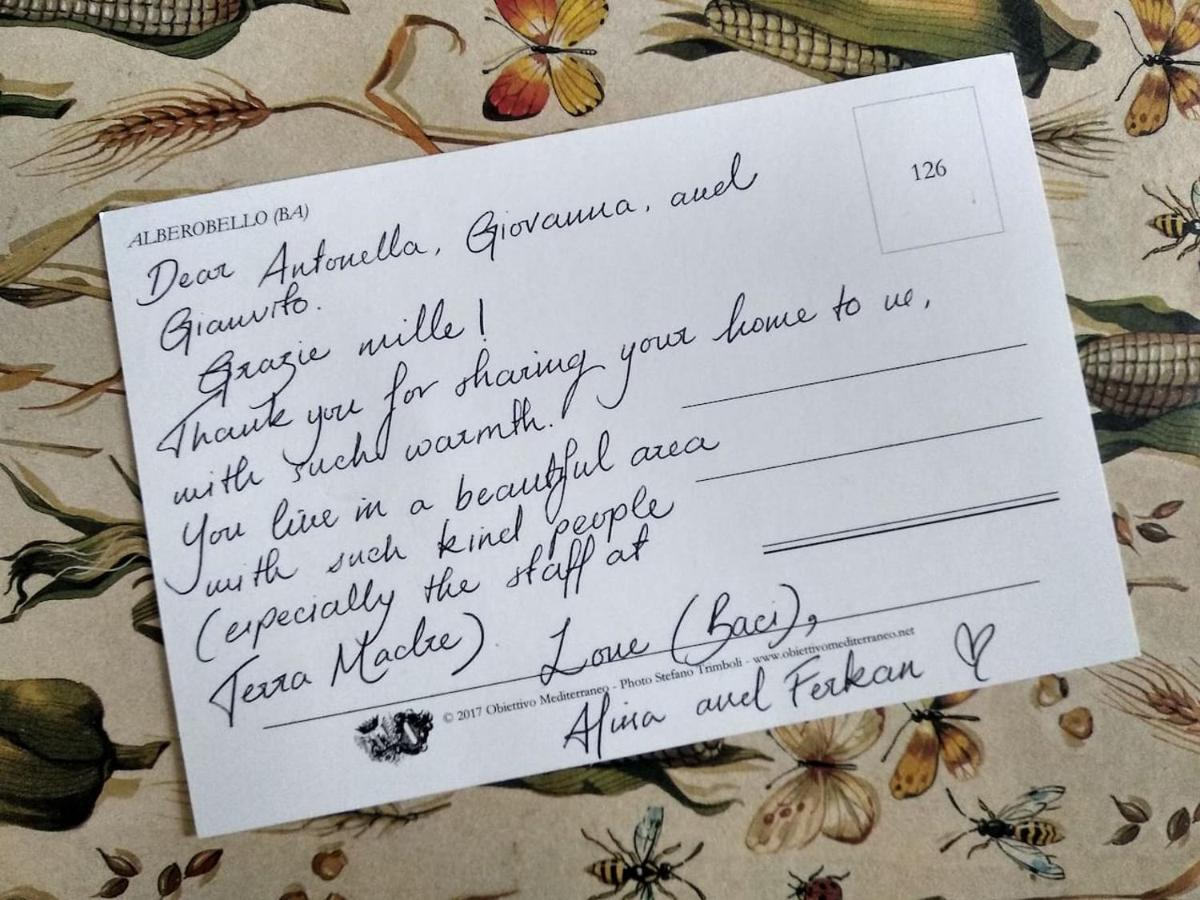 ALBEROBELLO (BA)
126
Dear Antonella, Giovanna, and
Gianvito.
Grazie mille!
Thank you for sharing your home to us,
with such warmth.
You live in a beautiful area
with such kind people
(especially the staff at
Terra Madre).
Love (Baci),
© 2017 Obiettivo Mediterraneo - Photo Stefano Trimboli - www.obiettivomediterraneo.net
Alina and Ferkan ♡